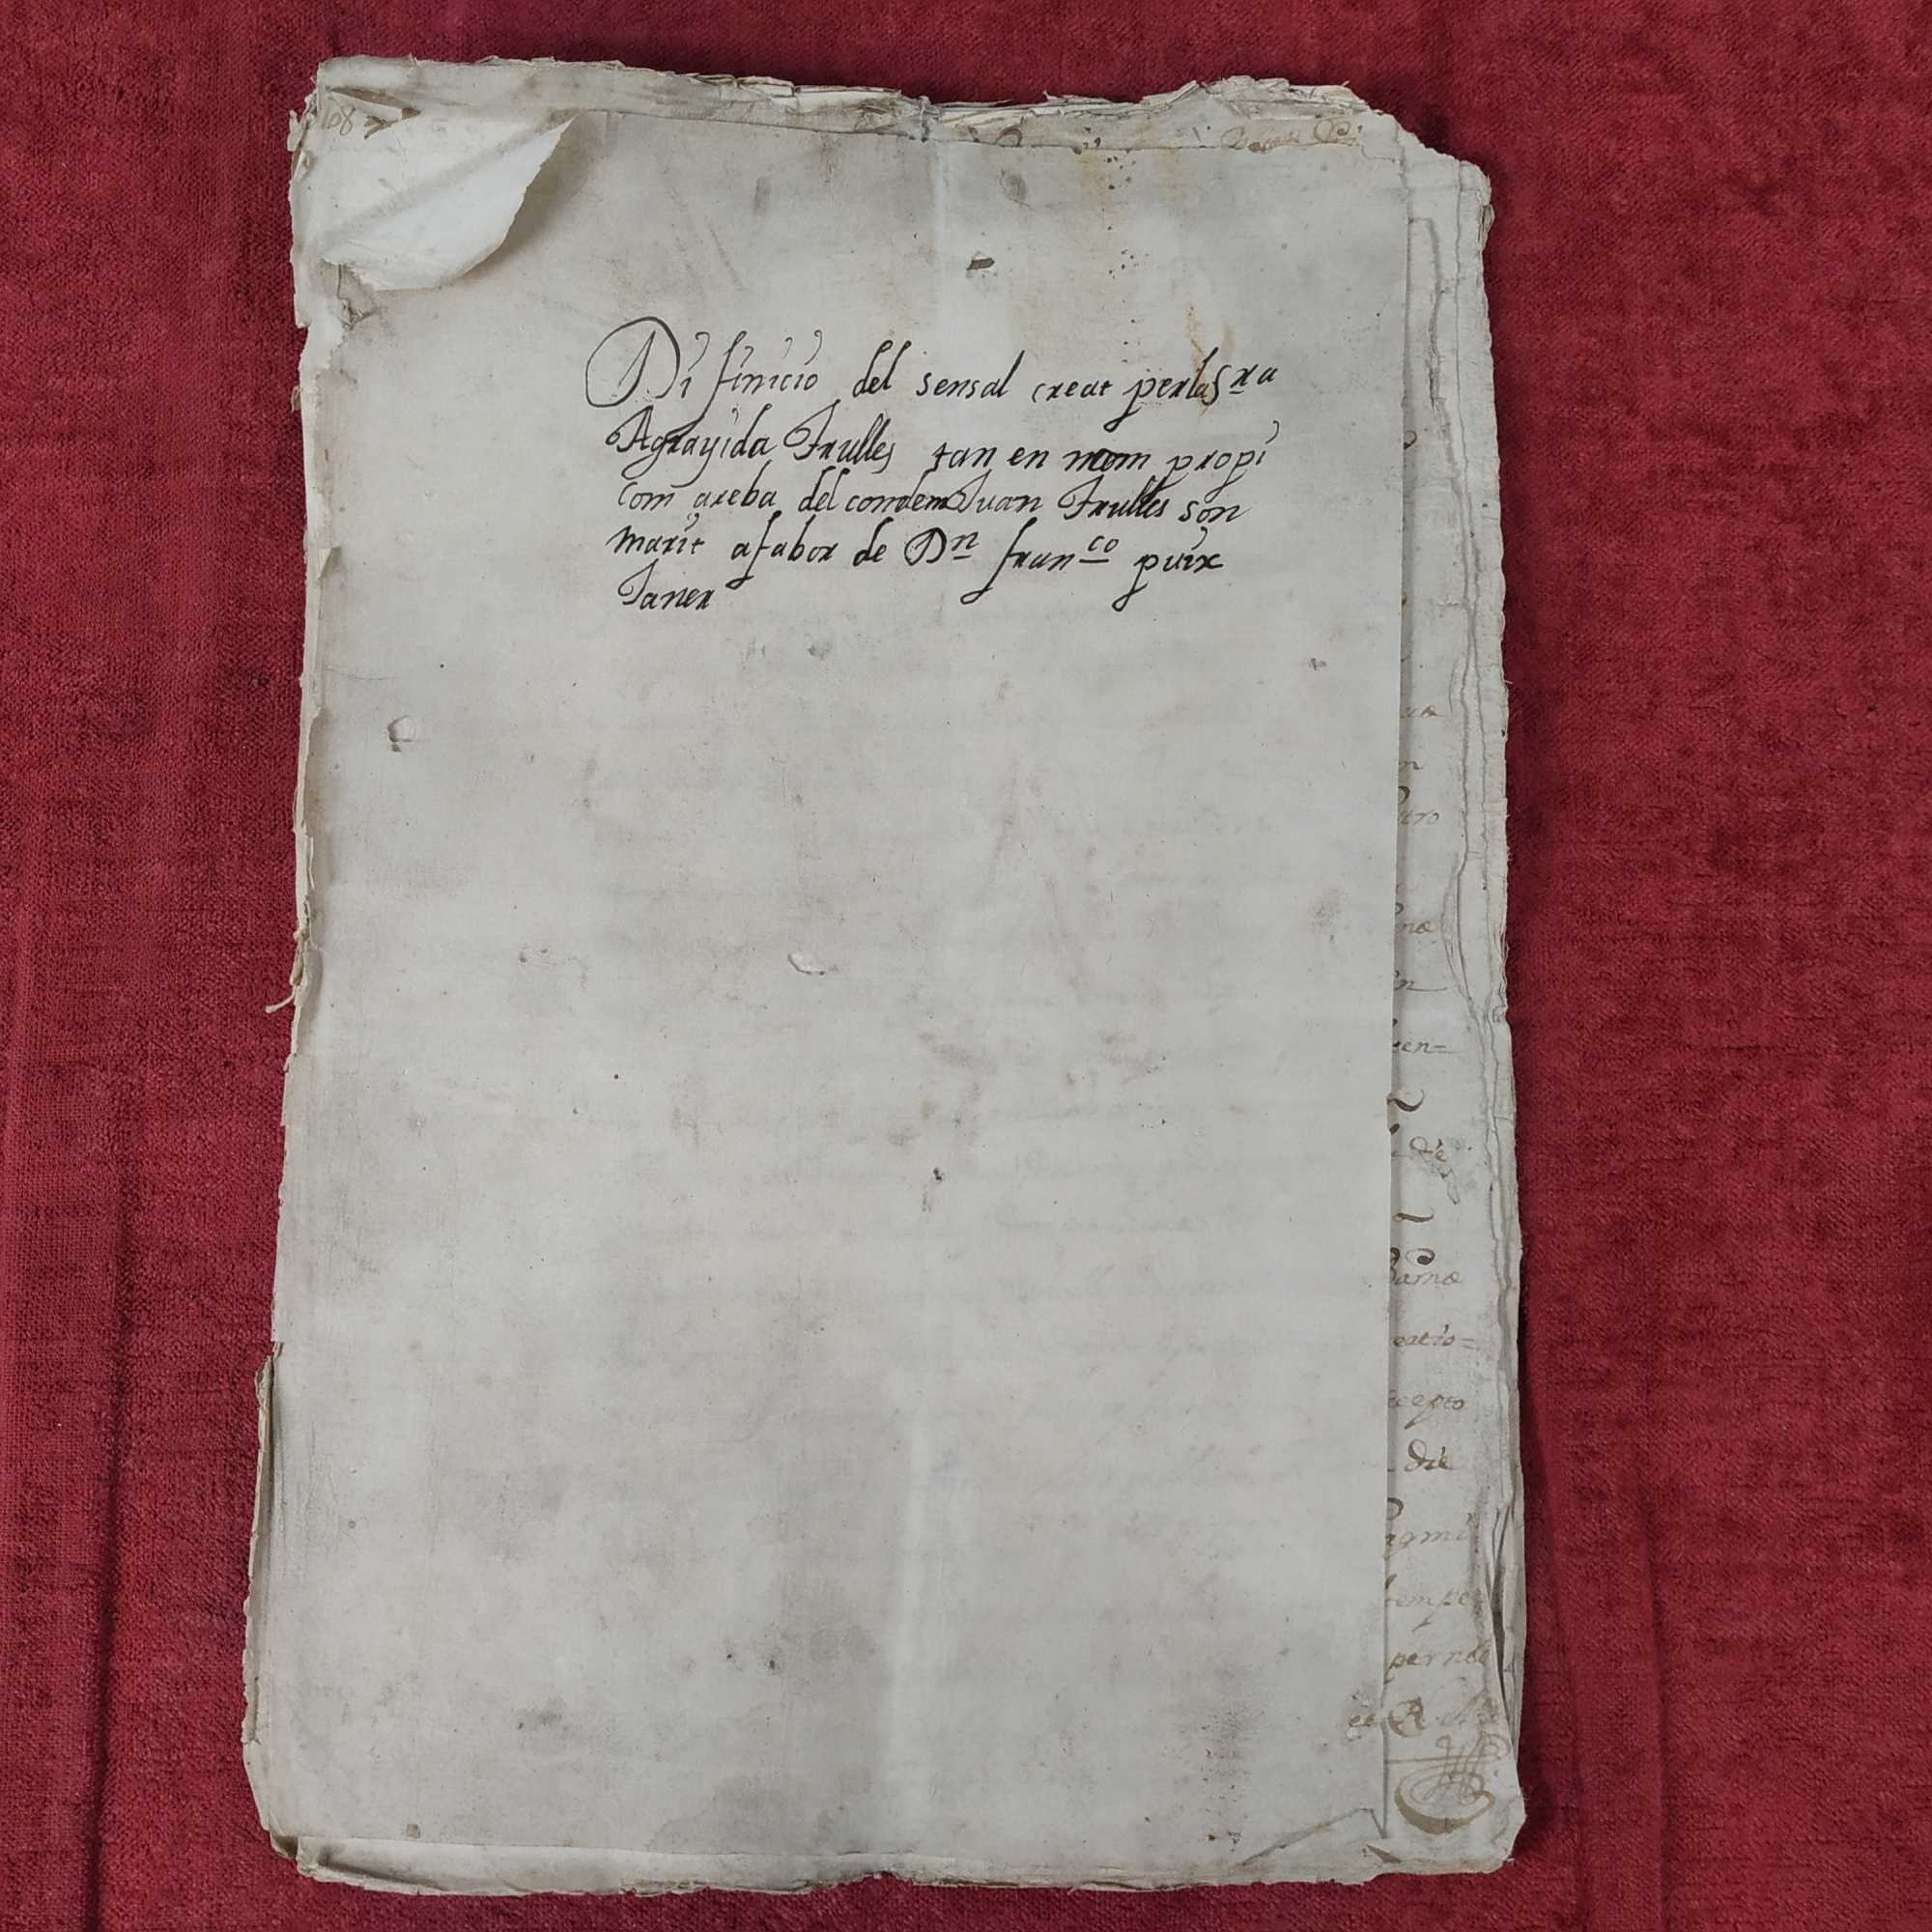 108
Difinicio del sensal creat perla Sra
Agrayida Trulles tan en nom propi
com areba del condem Juan Trulles son
marit afabor de Dn franco puix
Janer
en
de
Barnæ
eatio=
cepto
die
tempe